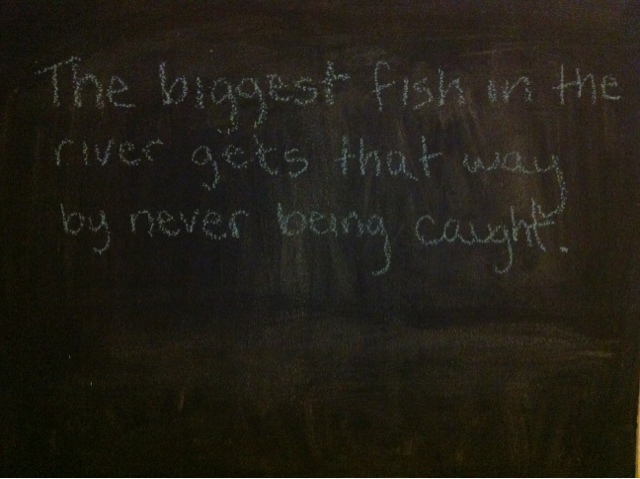 The biggest fish in the
river gets that way
by never being caught.